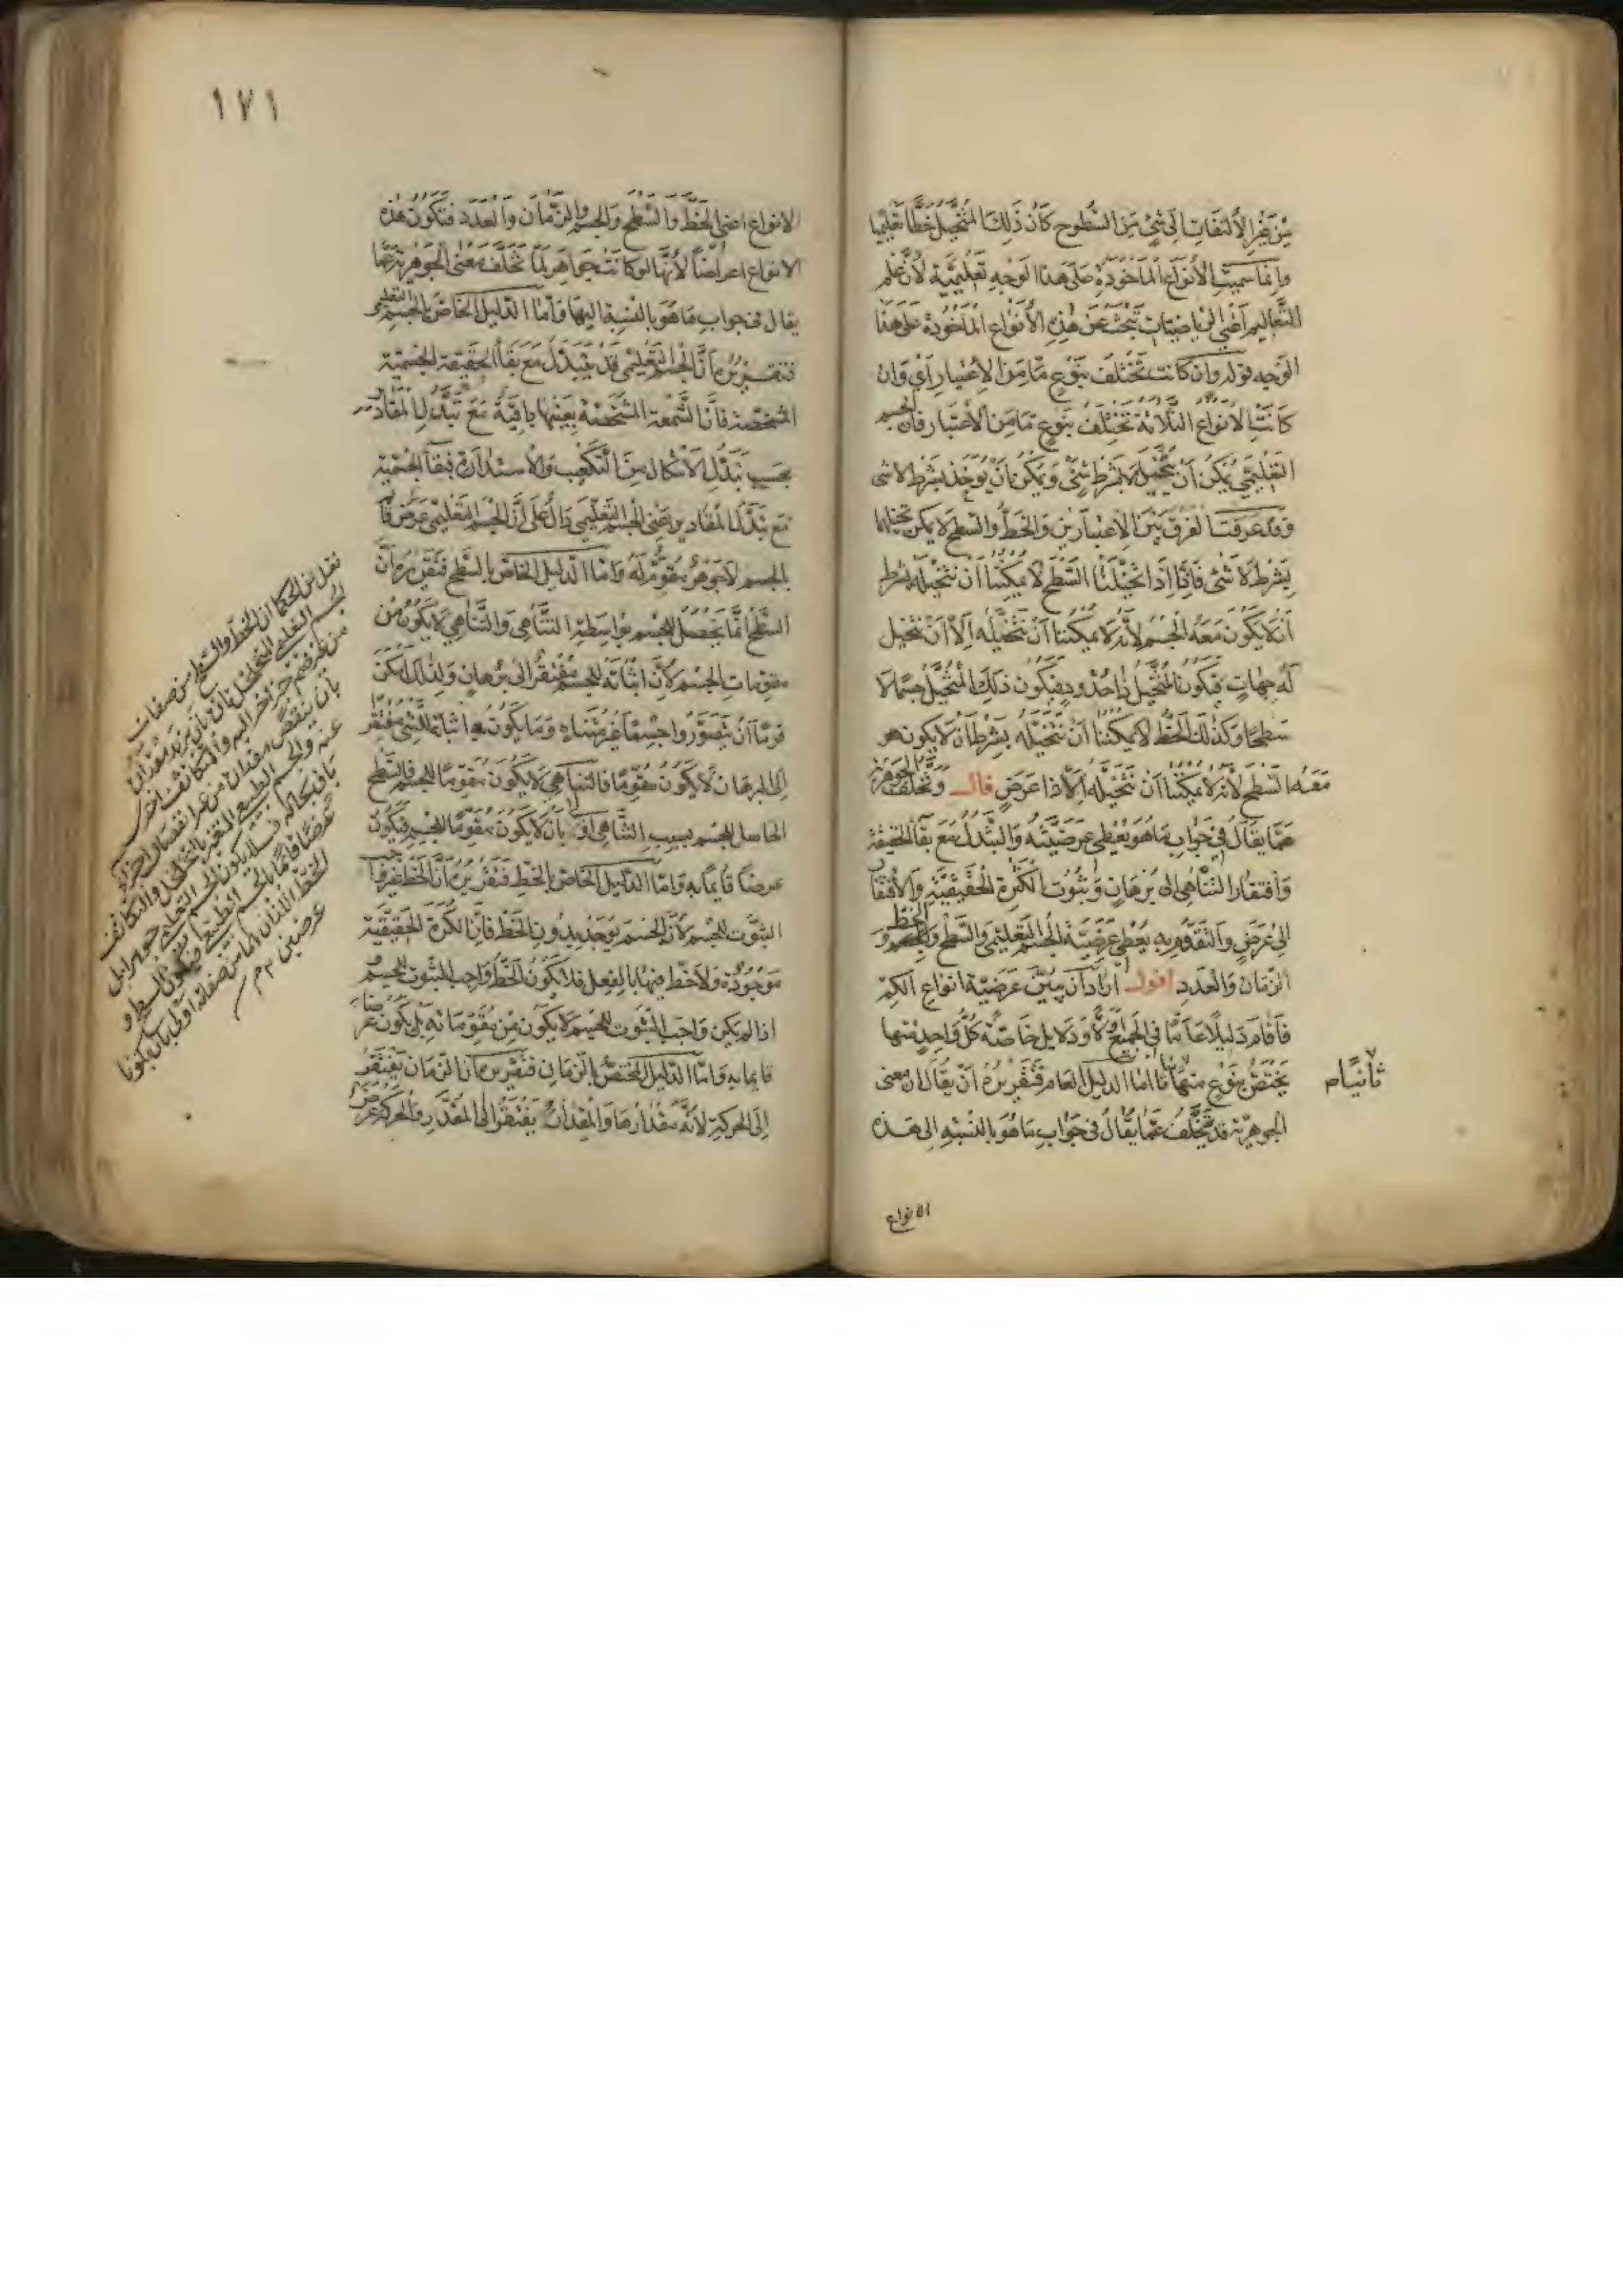 من غير الالتفات الى شئ من السطوح كان ذلك المتخيل خطا تعليميا
وانما سميت الانواع الماخوذة على هذا الوجه تعليمية لان علم
التعاليم اعنى الرياضيات تبحث عن هذه الانواع الماخوذة على هذا
الوجه قوله وان كانت تختلف بنوع ما من الاعتبار اى وان
كانت الانواع الثلاثة تختلف بنوع ما من الاعتبار فان الجسم
التعليمى يمكن ان يتخيل لا بشرط شئ ويمكن ان يوخذ بشرط لا شئ
وقد عرفت الفرق بين الاعتبارين والخط والسطح لا يمكن تخيلهما
بشرط لا شئ فانا اذا تخيلنا السطح لا يمكننا ان نتخيله بشرط
ان لا يكون معه الجسم لانه لا يمكننا ان نتخيله الا ان نتخيل
له جهات فيكون المتخيل ذا حدود فيكون ذلك المتخيل جسما لا
سطحا وكذلك الخط لا يمكننا ان نتخيله بشرط ان لا يكون هو
معه السطح لانه لا يمكننا ان نتخيله الا ذا عرض قال وتخلف الجوهرية
عما يقال فى جواب ما هو يعطى عرضيته والتبدل مع بقاء الحقيقة
وافتقار التناهى الى برهان وثبوت الكرة الحقيقية والافتقار
الى عرض والتقوم به يعطى عرضية الجسم التعليمى والسطح والخط و
الزمان والعدد اقول اراد ان يبين عرضية انواع الكم
فاقام دليلا عاما فى الجميع اولا ودلايل خاصة كل واحد منها
يختص بنوع منها ثانيا اما الدليل العام فتقريره ان يقال ان معنى
ثانيا م
الجوهرية قد تخلف عما يقال فى جواب ما هو بالنسبة الى هذه
الانواع
١٧١
الانواع اعنى الخط والسطح والجسم والزمان والعدد فتكون هذه
الانواع اعراضا لانها لو كانت جواهر لما تخلف معنى الجوهرية عما
يقال فى جواب ما هو بالنسبة اليها واما الدليل الخاص بالجسم التعليمى
فتقريره ان الجسم التعليمى قد يتبدل مع بقاء الحقيقة الجسمية
المشخصة فان الشمعة المشخصة بعينها باقية مع تبدل المقادير
بحسب تبدل الاشكال من التكعيب والاستدارة فبقاء الجسمية
مع تبدل المقادير اعنى الجسم التعليمى دال على ان الجسم التعليمى عرض قائم
بالجسم لا جوهر مقوم له واما الدليل الخاص بالسطح فتقريره ان
السطح انما يحصل للجسم بواسطة التناهى والتناهى لا يكون من
مقومات الجسم لان اثباته للجسم مفتقر الى برهان ولذلك امكن
قوما ان يتصوروا جسما غير متناه وما يكون اثباته للشئ مفتقر
الى البرهان لا يكون مقوما فالتناهى لا يكون مقوما للجسم فالسطح
الحاصل للجسم بسبب التناهى اولى بان لا يكون مقوما للجسم فيكون
عرضا قائما به واما الدليل الخاص بالخط فتقريره ان الخط غير واجب
الثبوت للجسم لان الجسم يوجد بدون الخط فان الكرة الحقيقية
موجودة ولا خط فيها بالفعل فلا يكون الخط واجب الثبوت للجسم و
اذا لم يكن واجب الثبوت للجسم لا يكون من مقوماته بل يكون عرضا
قائما به واما الدليل المختص بالزمان فتقريره ان الزمان يفتقر
الى الحركة لانه مقدارها والمقدار يفتقر الى المقدر والحركة عرض
نقل من الحكما ان الخط والسطح من صفات
الجسم التعليمى المتخلخل بان يزيد مقداره
من غير ضم جزء اخر اليه والتكاثف اخرى
بان ينتقص مقداره من غير انفصال اجزاء
عنه والجسم الطبيعى المتغير بالتخلخل والتكاثف
باق بحاله فلا يكون الجسم التعليمى جوهرا بل
عرضا قائما بالجسم الطبيعى فيكون السطح و
الخط اللذان هما من صفاته اولى بان يكونا
عرضين م م